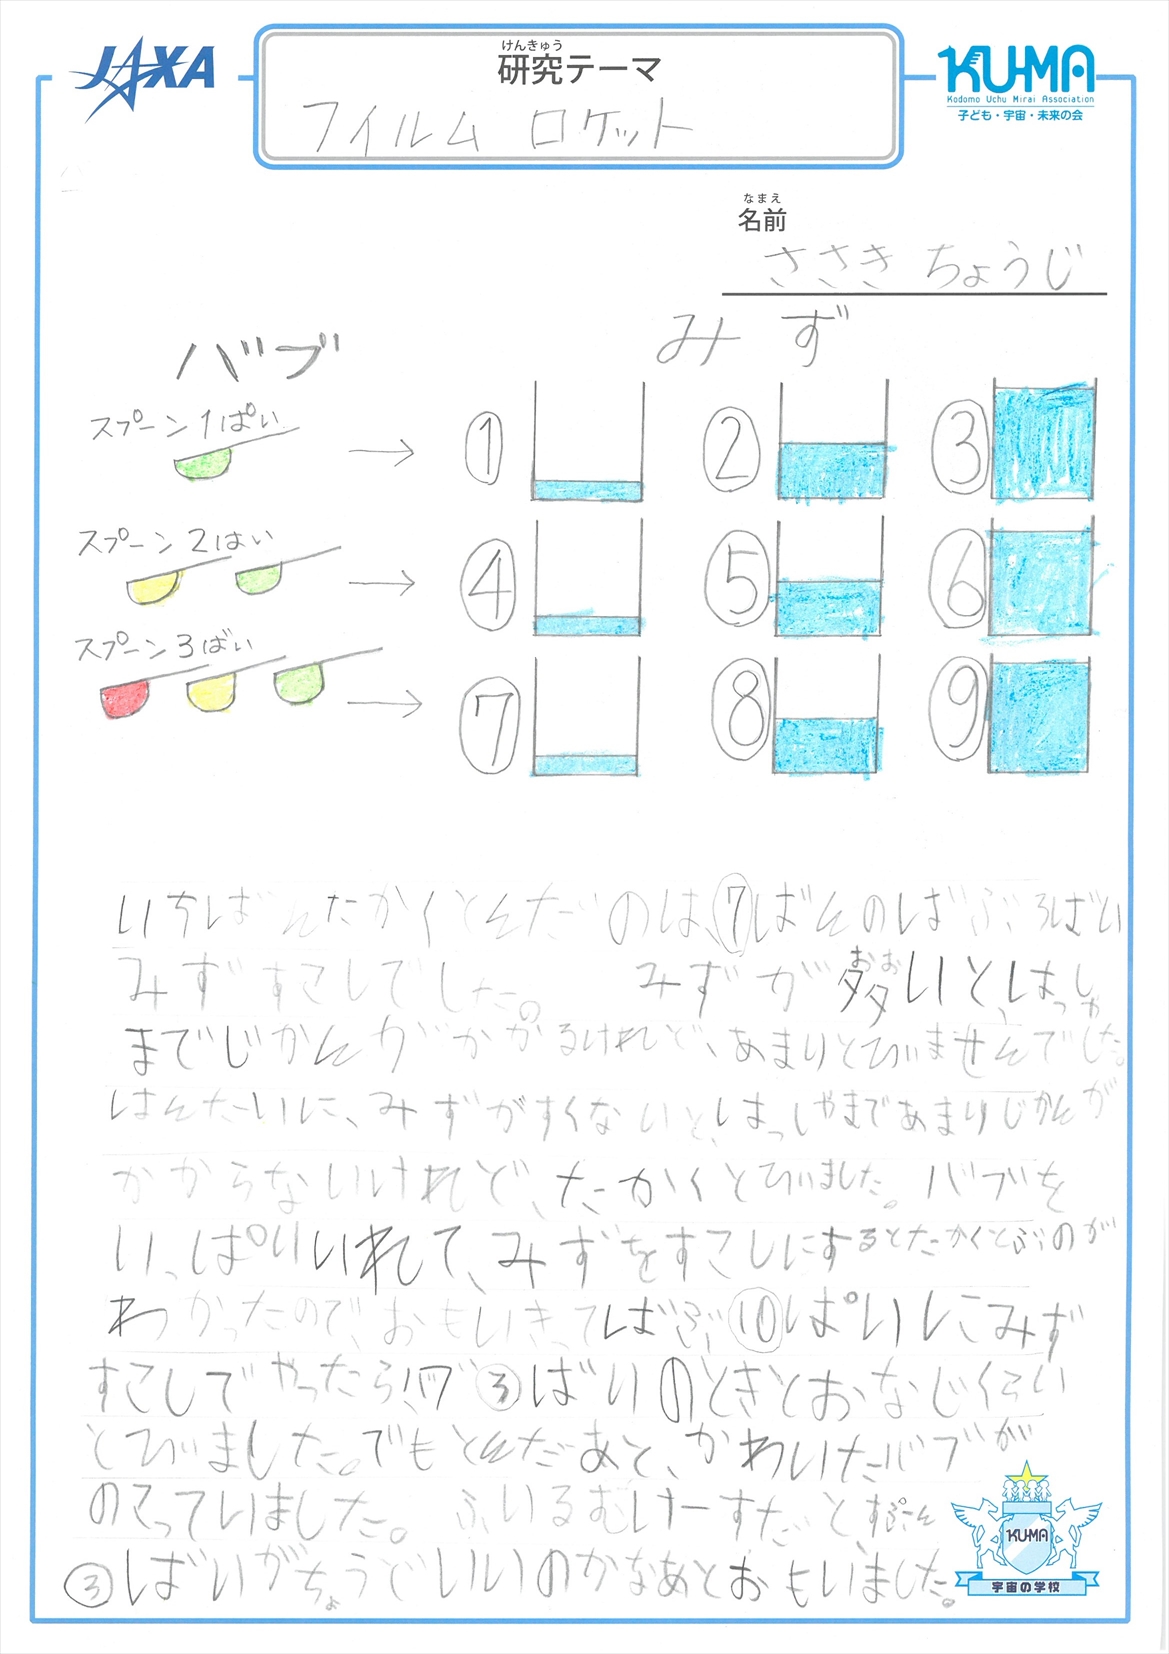 JAXA
けんきゅう
研究テーマ
フイルム ロケット
KU-MA
Kodomo Uchu Mirai Association
子ども・宇宙・未来の会
なまえ
名前
ささき ちょうじ
バブ
みず
スプーン1ぱい
① ② ③
スプーン2はい
④ ⑤ ⑥
スプーン3ばい
⑦ ⑧ ⑨
いちばんたかくとんだのは、⑦ばんのばぶ3ばい
みずすこしでした。 みずが多いと、はっしゃ
おお
までじかんがかかるけれど、あまりとびませんでした。
はんたいに、みずがすくないと、はっしゃまであまりじかんが
かからないけれど、たかくとびました。バブを
いっぱいいれて、みずをすこしにするとたかくとぶのが
わかったので、おもいきってばぶ⑩ぱいにみず
すこしでやったら、バブ③ばいのときとおなじくらい
とびました。でもとんだあと、かわいたバブが
のこっていました。ふいるむけーすだとすぷーん
③ばいがちょうどいいのかなあとおもいました。
KU-MA
宇宙の学校